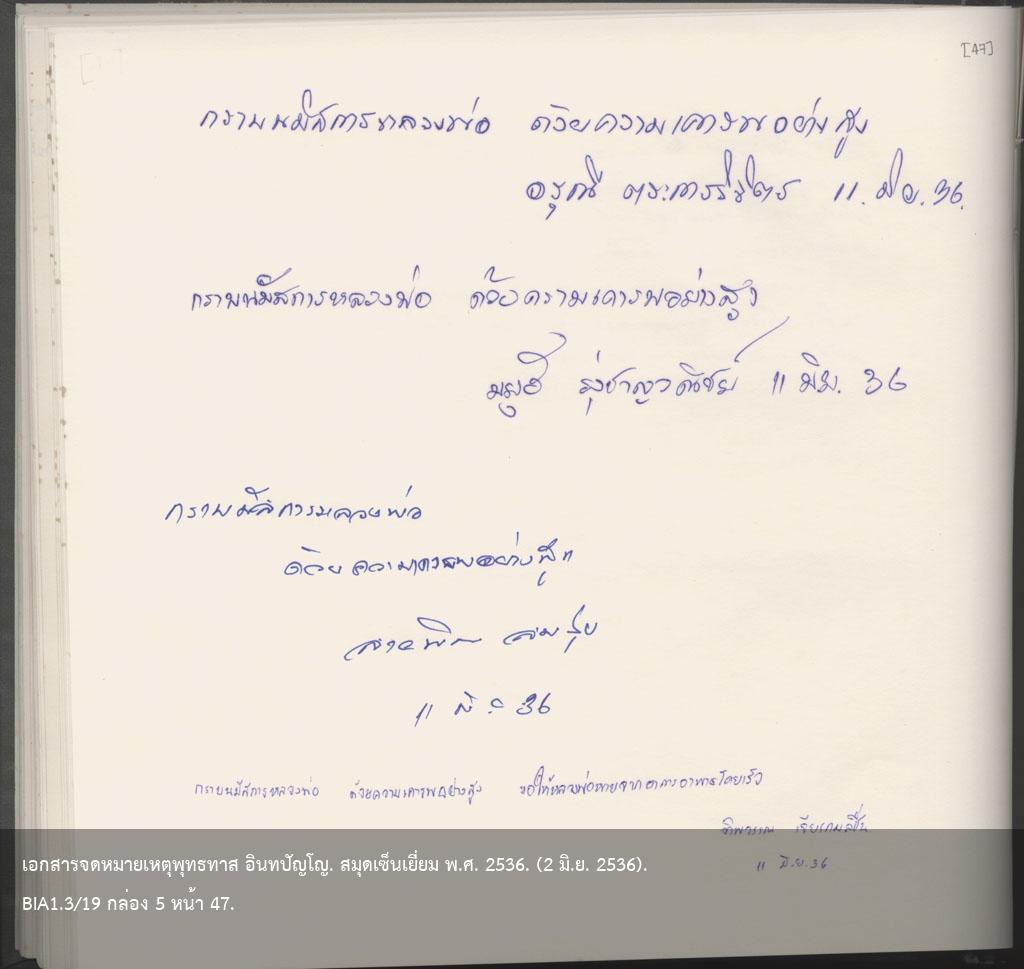 [47]
กราบนมัสการหลวงพ่อ ด้วยความเคารพอย่างสูง
อรุณี 11. มิย. 36.
กราบนมัสการหลวงพ่อ ด้วยความเคารพอย่างสูง
11 มิย. 36
กราบนมัสการหลวงพ่อ
ด้วยความเคารพอย่างสูง
11 มิย 36
กราบนมัสการหลวงพ่อ ด้วยความเคารพอย่างสูง ขอให้หลวงพ่อหายจากอาการอาพาธโดยเร็ว
ทิพวรรณ
11 มิ.ย. 36
เอกสารจดหมายเหตุพุทธทาส อินทปัญโญ. สมุดเซ็นเยี่ยม พ.ศ. 2536. (2 มิ.ย. 2536).
BIA1.3/19 กล่อง 5 หน้า 47.